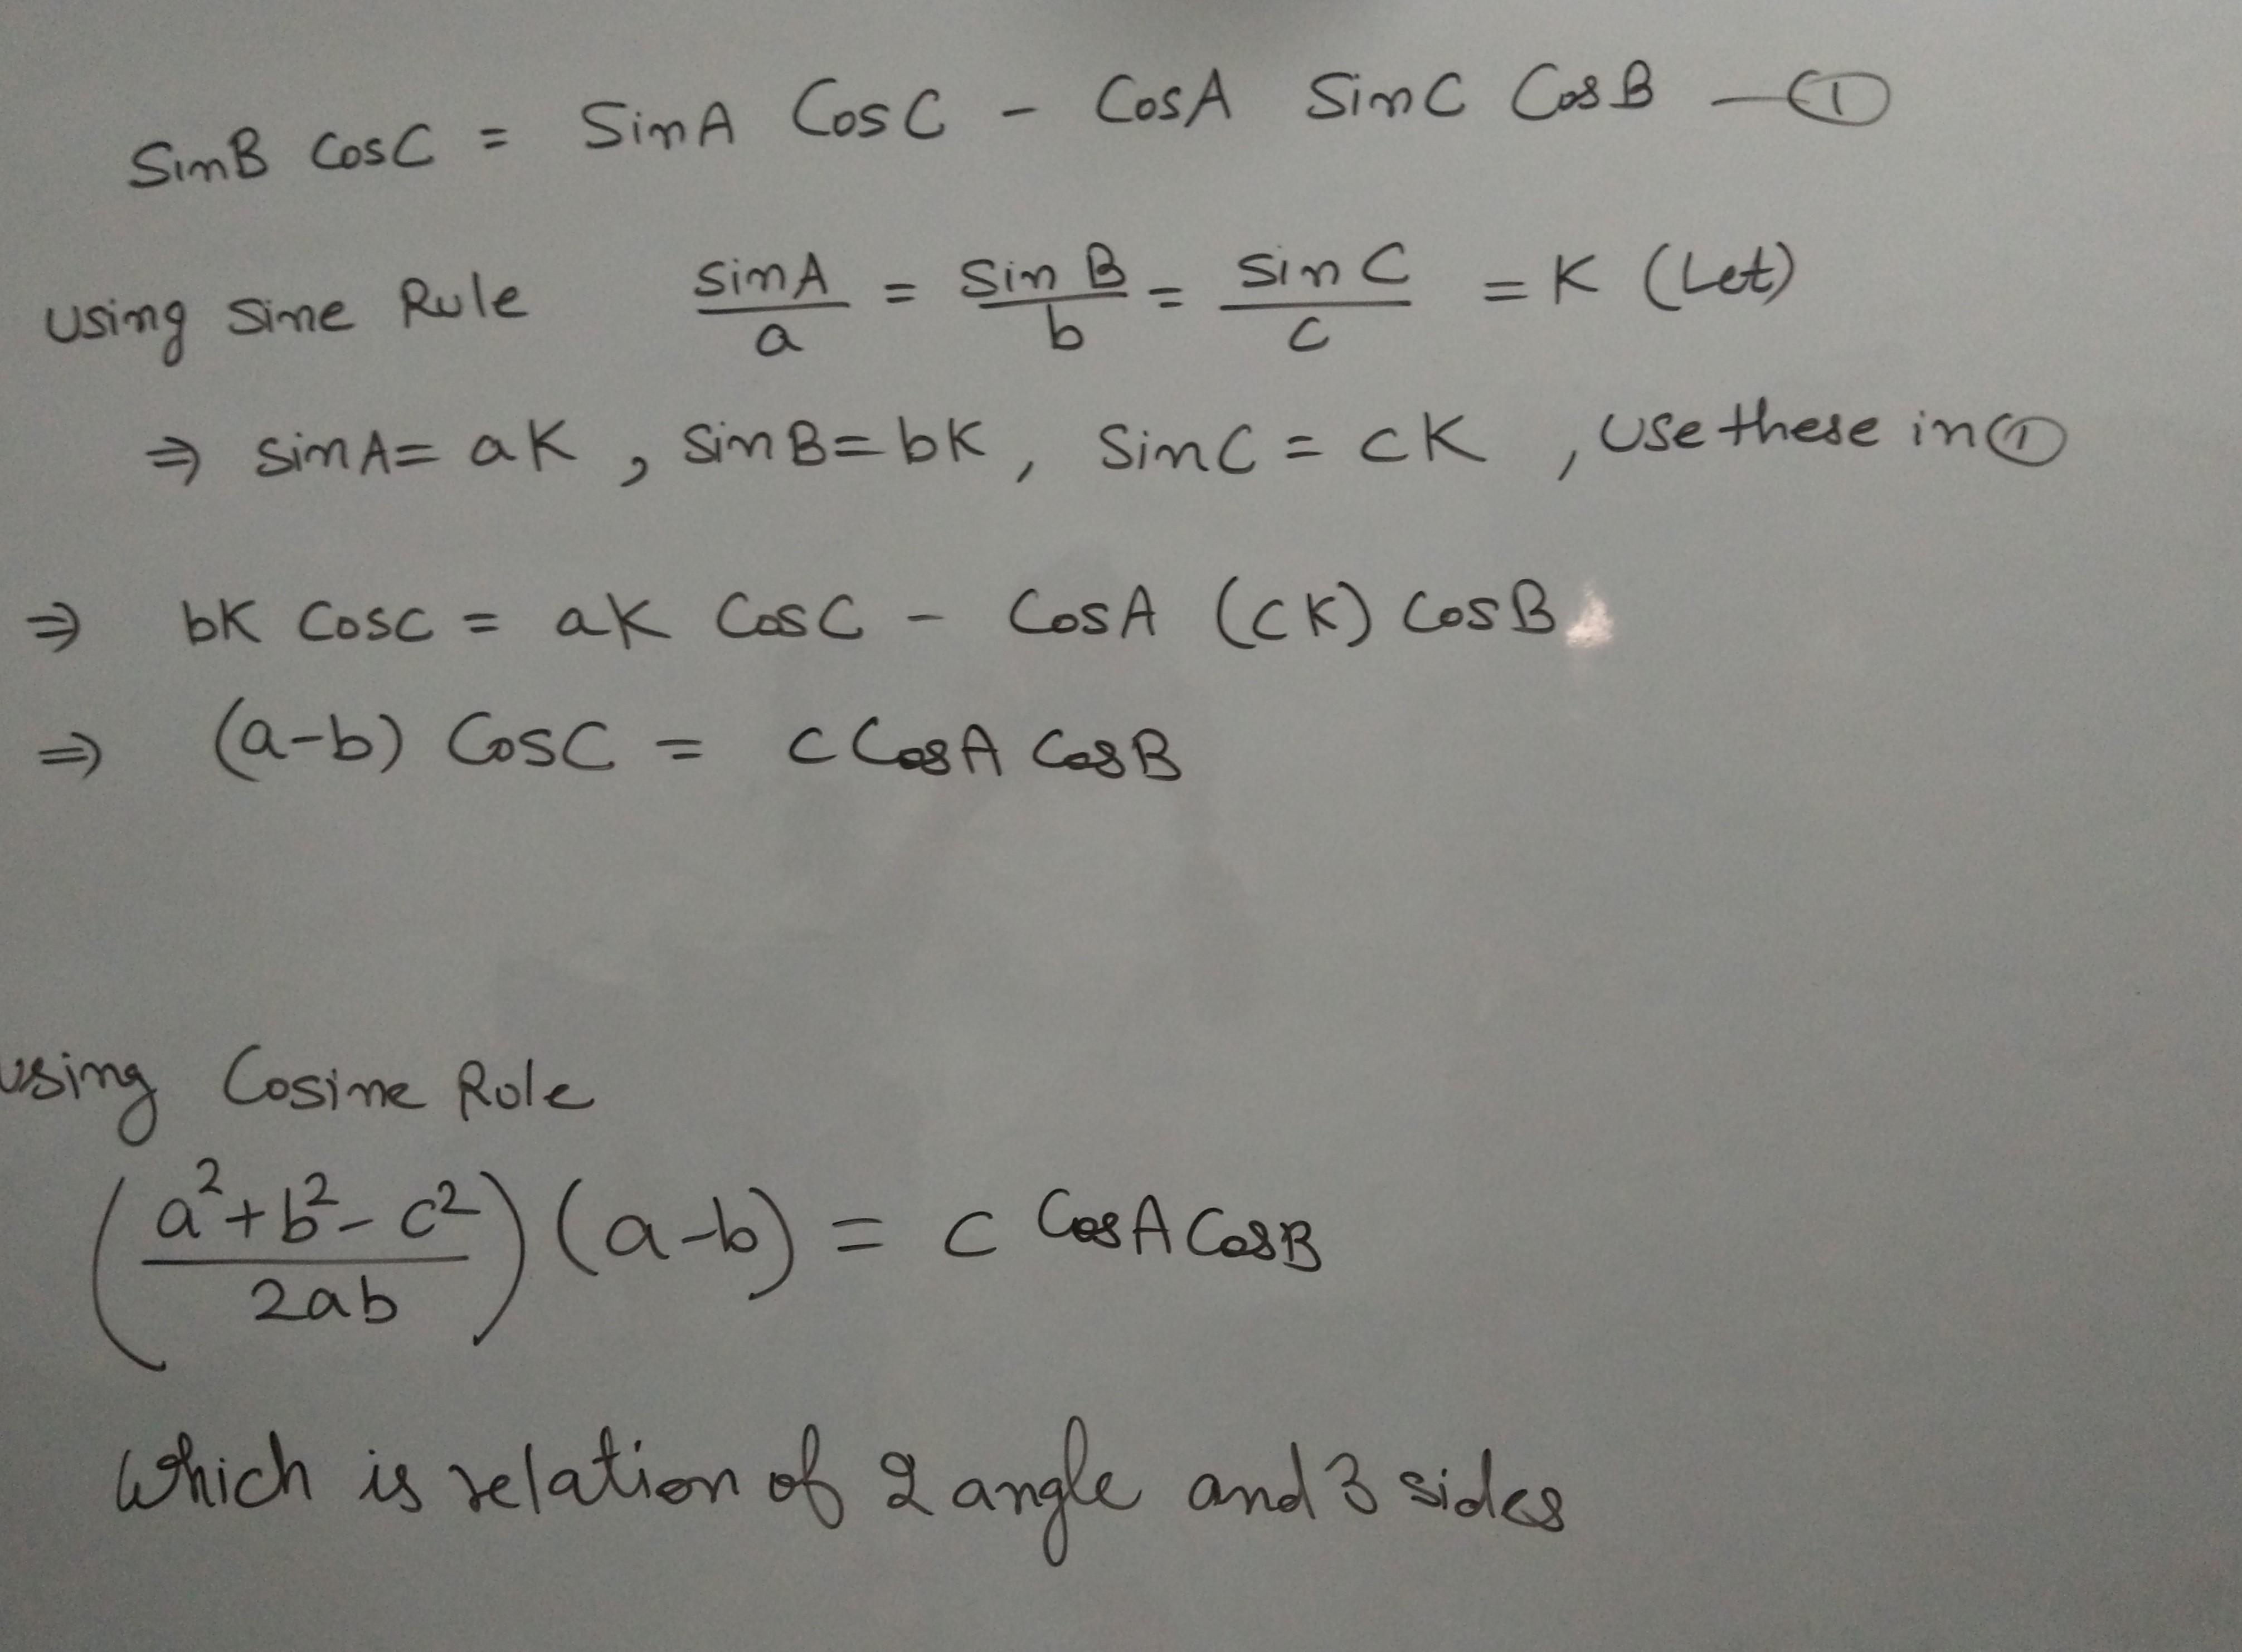 SinB CosC = SinA CosC - CosA SinC CosB — ①
Using Sine Rule sinA/a = Sin B/b = Sin C/c = K (Let)
⇒ sinA = aK , SinB = bK , SinC = cK , Use these in ①
⇒ bK Cosc = aK CosC - CosA (cK) CosB
⇒ (a-b) CosC = c CosA CosB
using Cosine Role
(a²+b²-c²/2ab) (a-b) = c CosA CosB
Which is relation of 2 angle and 3 sides